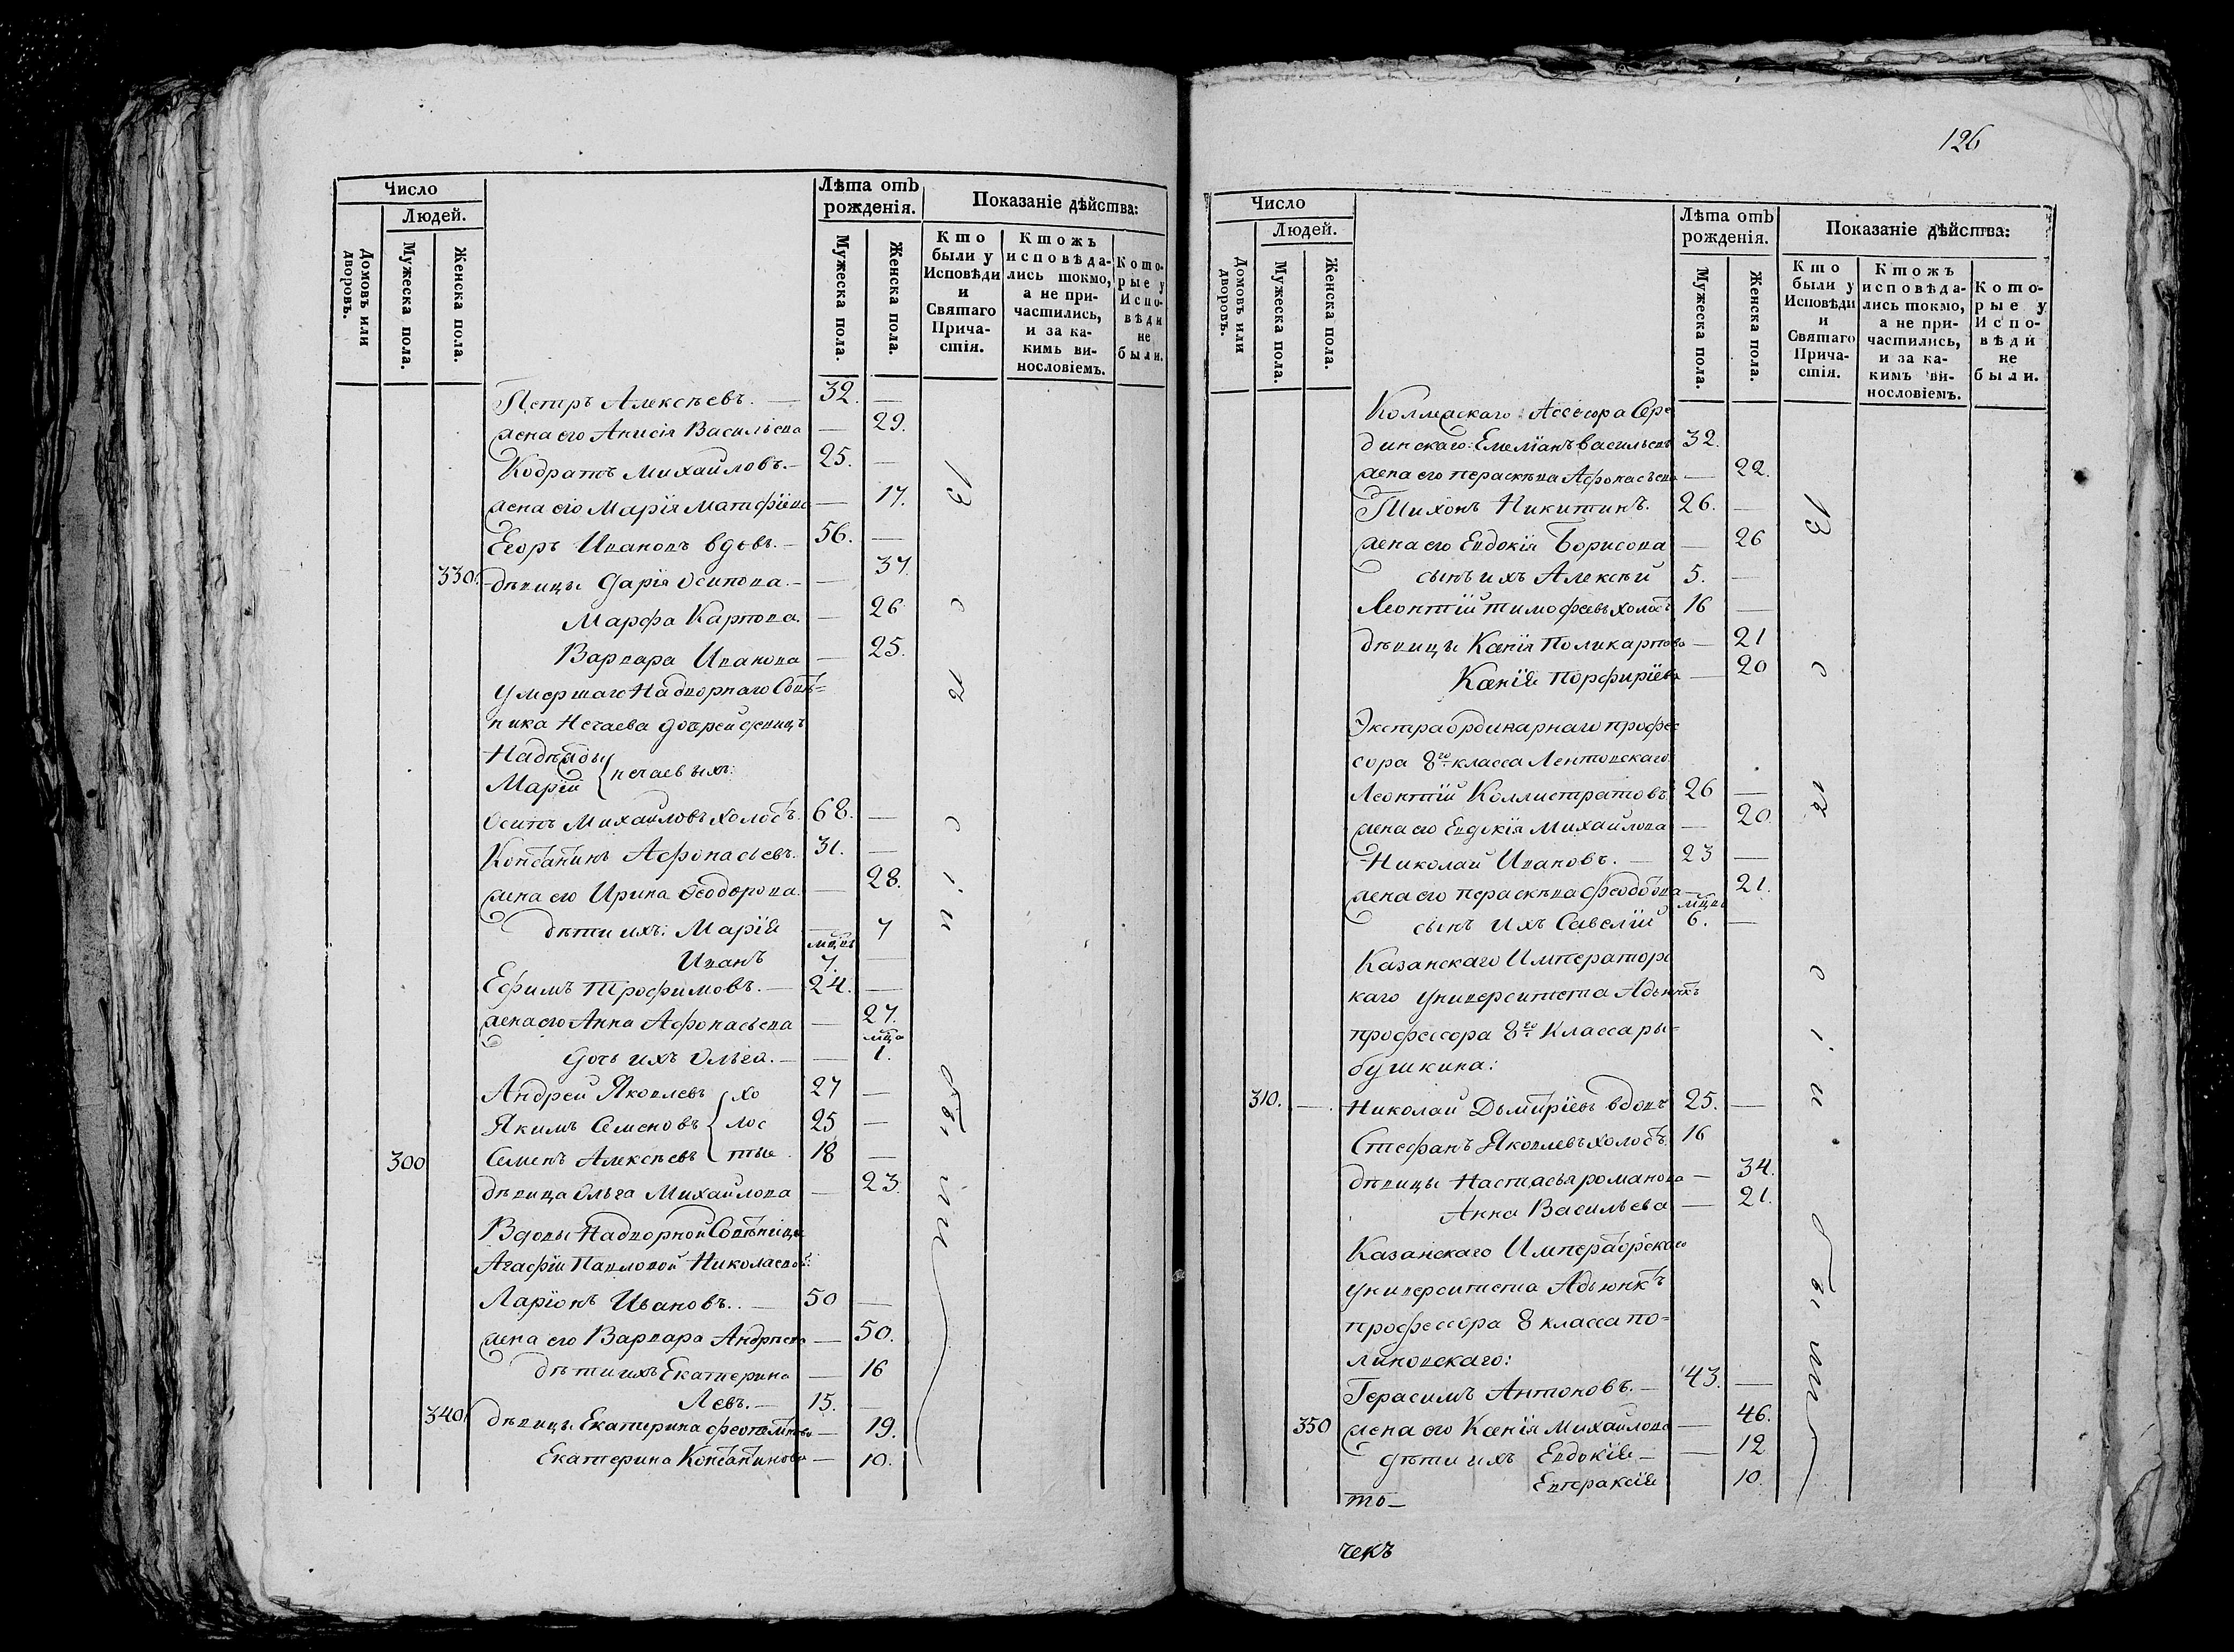 Число
Людей.
Домовъ или дворовъ.
Мужеска пола.
Женска пола.
Лѣта отъ рожденія.
Мужеска пола.
Женска пола.
Показаніе дѣйства:
Кто были у Исповѣди и Святаго Причастія.
Ктожъ исповѣдались токмо, а не причастились, и за какимъ винословіемъ.
Которые у Исповѣди не были.
Петръ Алексѣевъ. — 32. —
жена его Анисія Васильева — 29.
Кодратъ Михайловъ. — 25. —
жена его Марія Матфіева — 17.
Егоръ Ивановъ вдовъ. — 56. —
330. дѣвицы Дарія Осипова. — 37.
Марфа Карпова. — 26
Варвара Иванова — 25.
Умершаго Надворнаго Совѣт=
ника Нечаева дочерей девицъ
Надѣжды
Маріи } нечаевыхъ:
Осипъ Михайловъ холостъ. 68. —
Констан͠тинъ Афонасьевъ. 31. —
жена его Ирина Ѳеодорова. — 28.
дѣти ихъ: Марія — 7
Иванъ 7. —
Ефимъ Трофимовъ. — 24. —
жена его Анна Афонасьева — 27.
Дочь ихъ Ольга. — — 1.
Андрей Яковлевъ хо 27 —
Якимъ Семеновъ { лос 25 —
300 Семенъ Алексѣевъ тые 18 —
дѣвица Ольга Михайлова — 23.
Вдовы Надворной Совѣтницы
Агафіи Павловой Николаевой:
Ларіонъ Ивановъ. — 50 —
жена его Варвара Андреева — 50.
дѣти ихъ Екатерина — 16
Левъ. — 15. —
340 дѣвицы Екатерина Феоктистова — 19.
Екатерина Константинова — 10.
126
Число
Людей.
Домовъ или дворовъ.
Мужеска пола.
Женска пола.
Лѣта отъ рожденія.
Мужеска пола.
Женска пола.
Показаніе дѣйства:
Кто были у Исповѣди и Святаго Причастія.
Ктожъ исповѣдались токмо, а не причастились, и за какимъ винословіемъ.
Которые у Исповѣди не были.
Коллежскаго Ассесора Сере
динскаго: Емеліанъ Васильевъ 32.
жена его Параскѣва Афонасьева — 22.
Тихонъ Никитинъ. 26. —
жена его Евдокія Борисова — 26
сынъ ихъ Алексѣй 5. —
Леонтій Тимофеевъ холостъ 16 —
дѣвицы Ксенія Поликарпова — 21
Ксенія Порфиріева — 20
Экстраординарнаго профес
сора 8го класса Лентовскаго
Леонтій Коллистратовъ. 26 —
жена его Евдокія Михайлова — 20.
Николай Ивановъ. — 23 —
жена его Параскѣва Феодотова — 21.
сынъ ихъ Савелій 6. —
Казанскаго Императорс
каго университета Адъюнктъ
профессора 8го Класса ры=
бушкина:
310. — Николай Дьмитріевъ вдовъ 25. —
Стефанъ Яковлевъ холостъ. 16
дѣвицы Настасья романова — 34.
Анна Васильева — 21.
Казанскаго Императорскаго
университета Адъюнктъ
профессора 8 класса по=
линовскаго:
Герасимъ Антоновъ. — 43. —
350 жена его Ксенія Михайлова — 46.
дѣти ихъ Евдокія — — 12
Евпраксія 10.
то—
чекъ